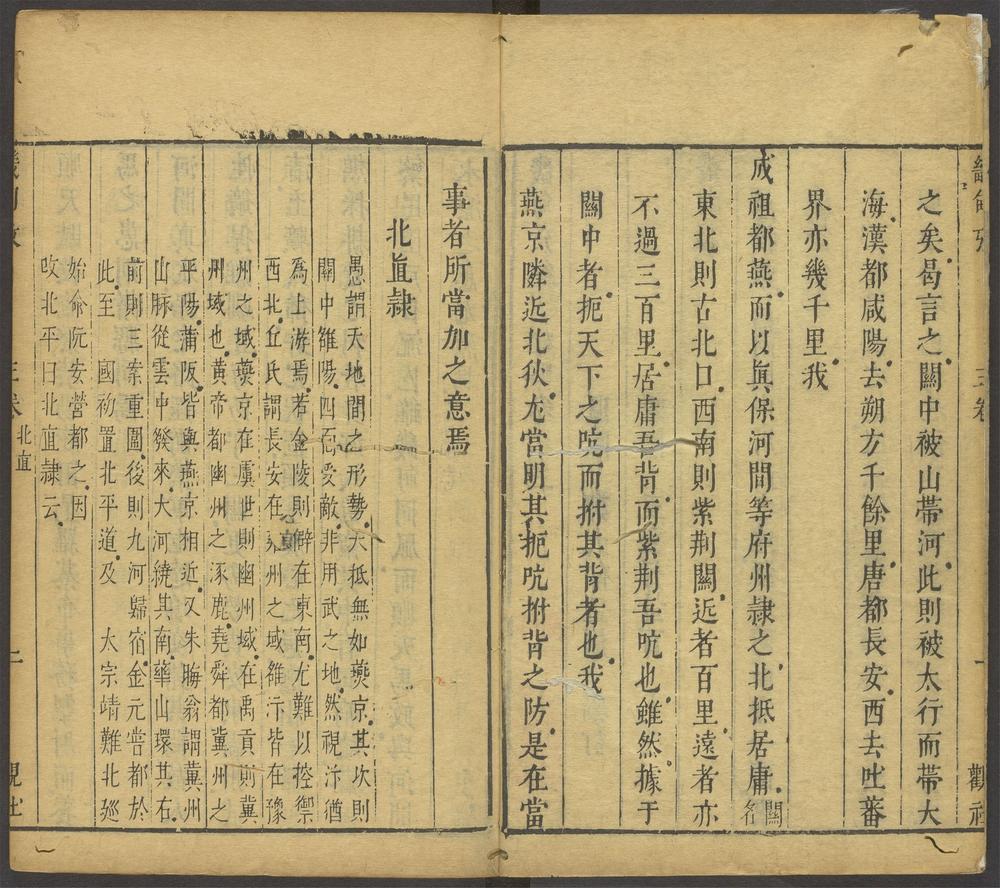 之矣曷言之關中被山帶河此則被太行而帶大
海漢都咸陽去朔方千餘里唐都長安西去吐蕃
界亦幾千里我
成祖都燕而以眞保河間等府州隸之北抵居庸關名
東北則古北口西南則紫荆關近者百里遠者亦
不過三百里居庸吾背而紫荆吾吭也雖然據于
關中者扼天下之吭而拊其背者也我
燕京隣近北狄尢當明其扼吭拊背之防是在當
事者所當加之意焉
北直隸
愚謂天地間之形勢大抵無如燕京其次則
關中雒陽四面受敵非用武之地然視汴猶
爲上游焉若金陵則僻在東南尤難以控禦
西北丘氏謂長安在雍州之域雒汴皆在豫
州之域燕京在虞世則幽州域在禹貢則冀
州域也黃帝都幽州之涿鹿堯舜都冀州之
平陽蒲阪皆與燕京相近又朱晦翁謂冀州
山脈從雲中發來大河繞其南華山環其右
前則三案重圍後則九河歸宿金元嘗都於
此至 國初置北平道及 太宗靖難北廵
始命阮安營都之因
攺北平曰北直隸云
三卷
北直
二
觀社
三卷
一
觀社